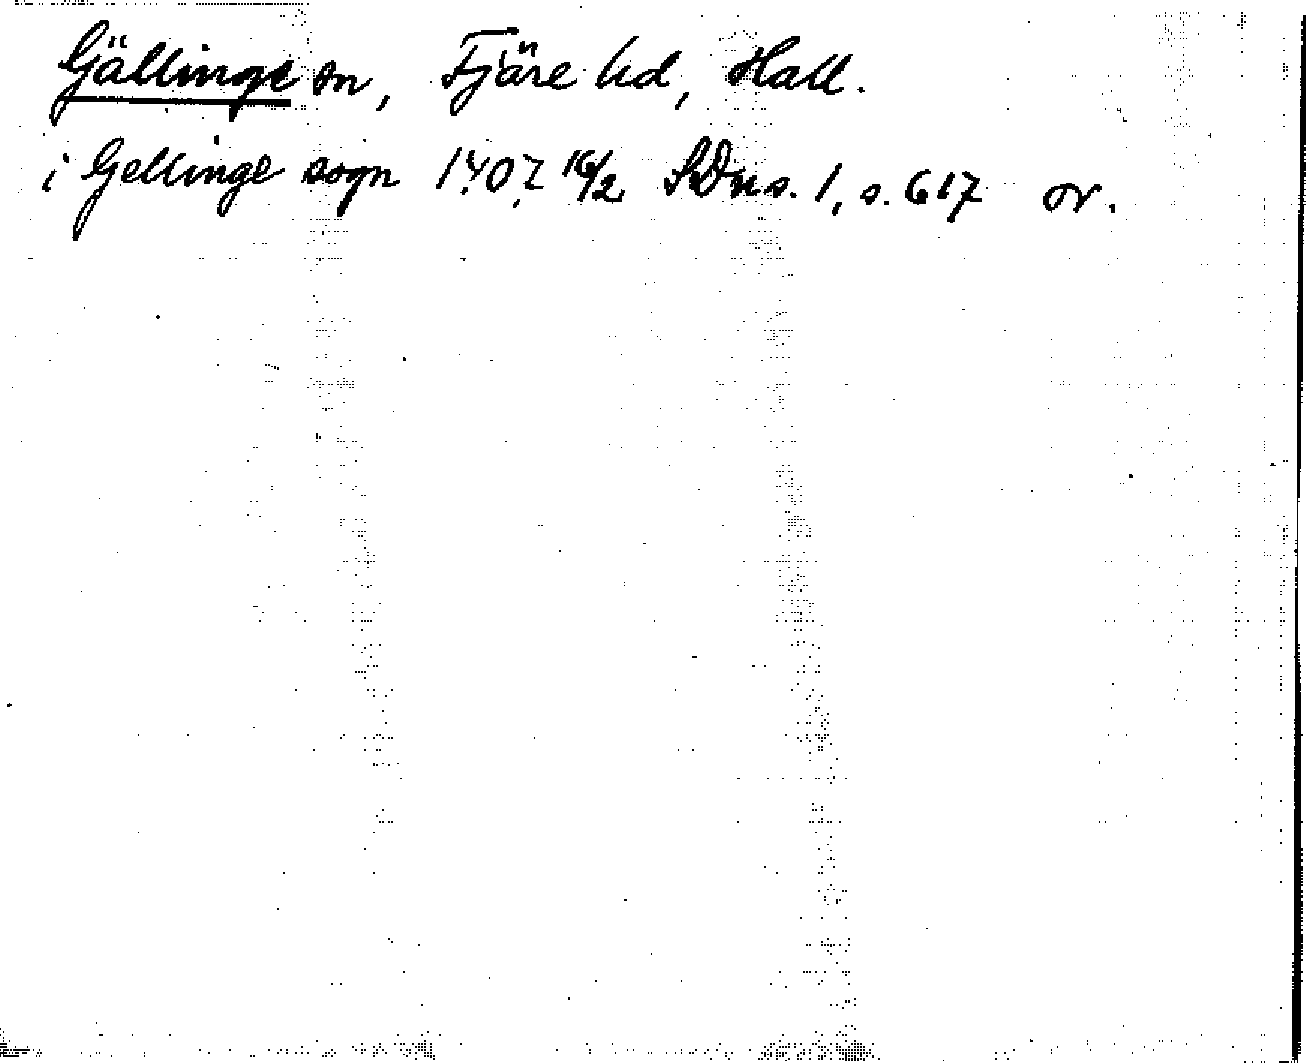 Gällinge sn, Fjäre hd, Hall.
i Gellinge sogn 1407 16/2 SDns. 1, s. 617 or.